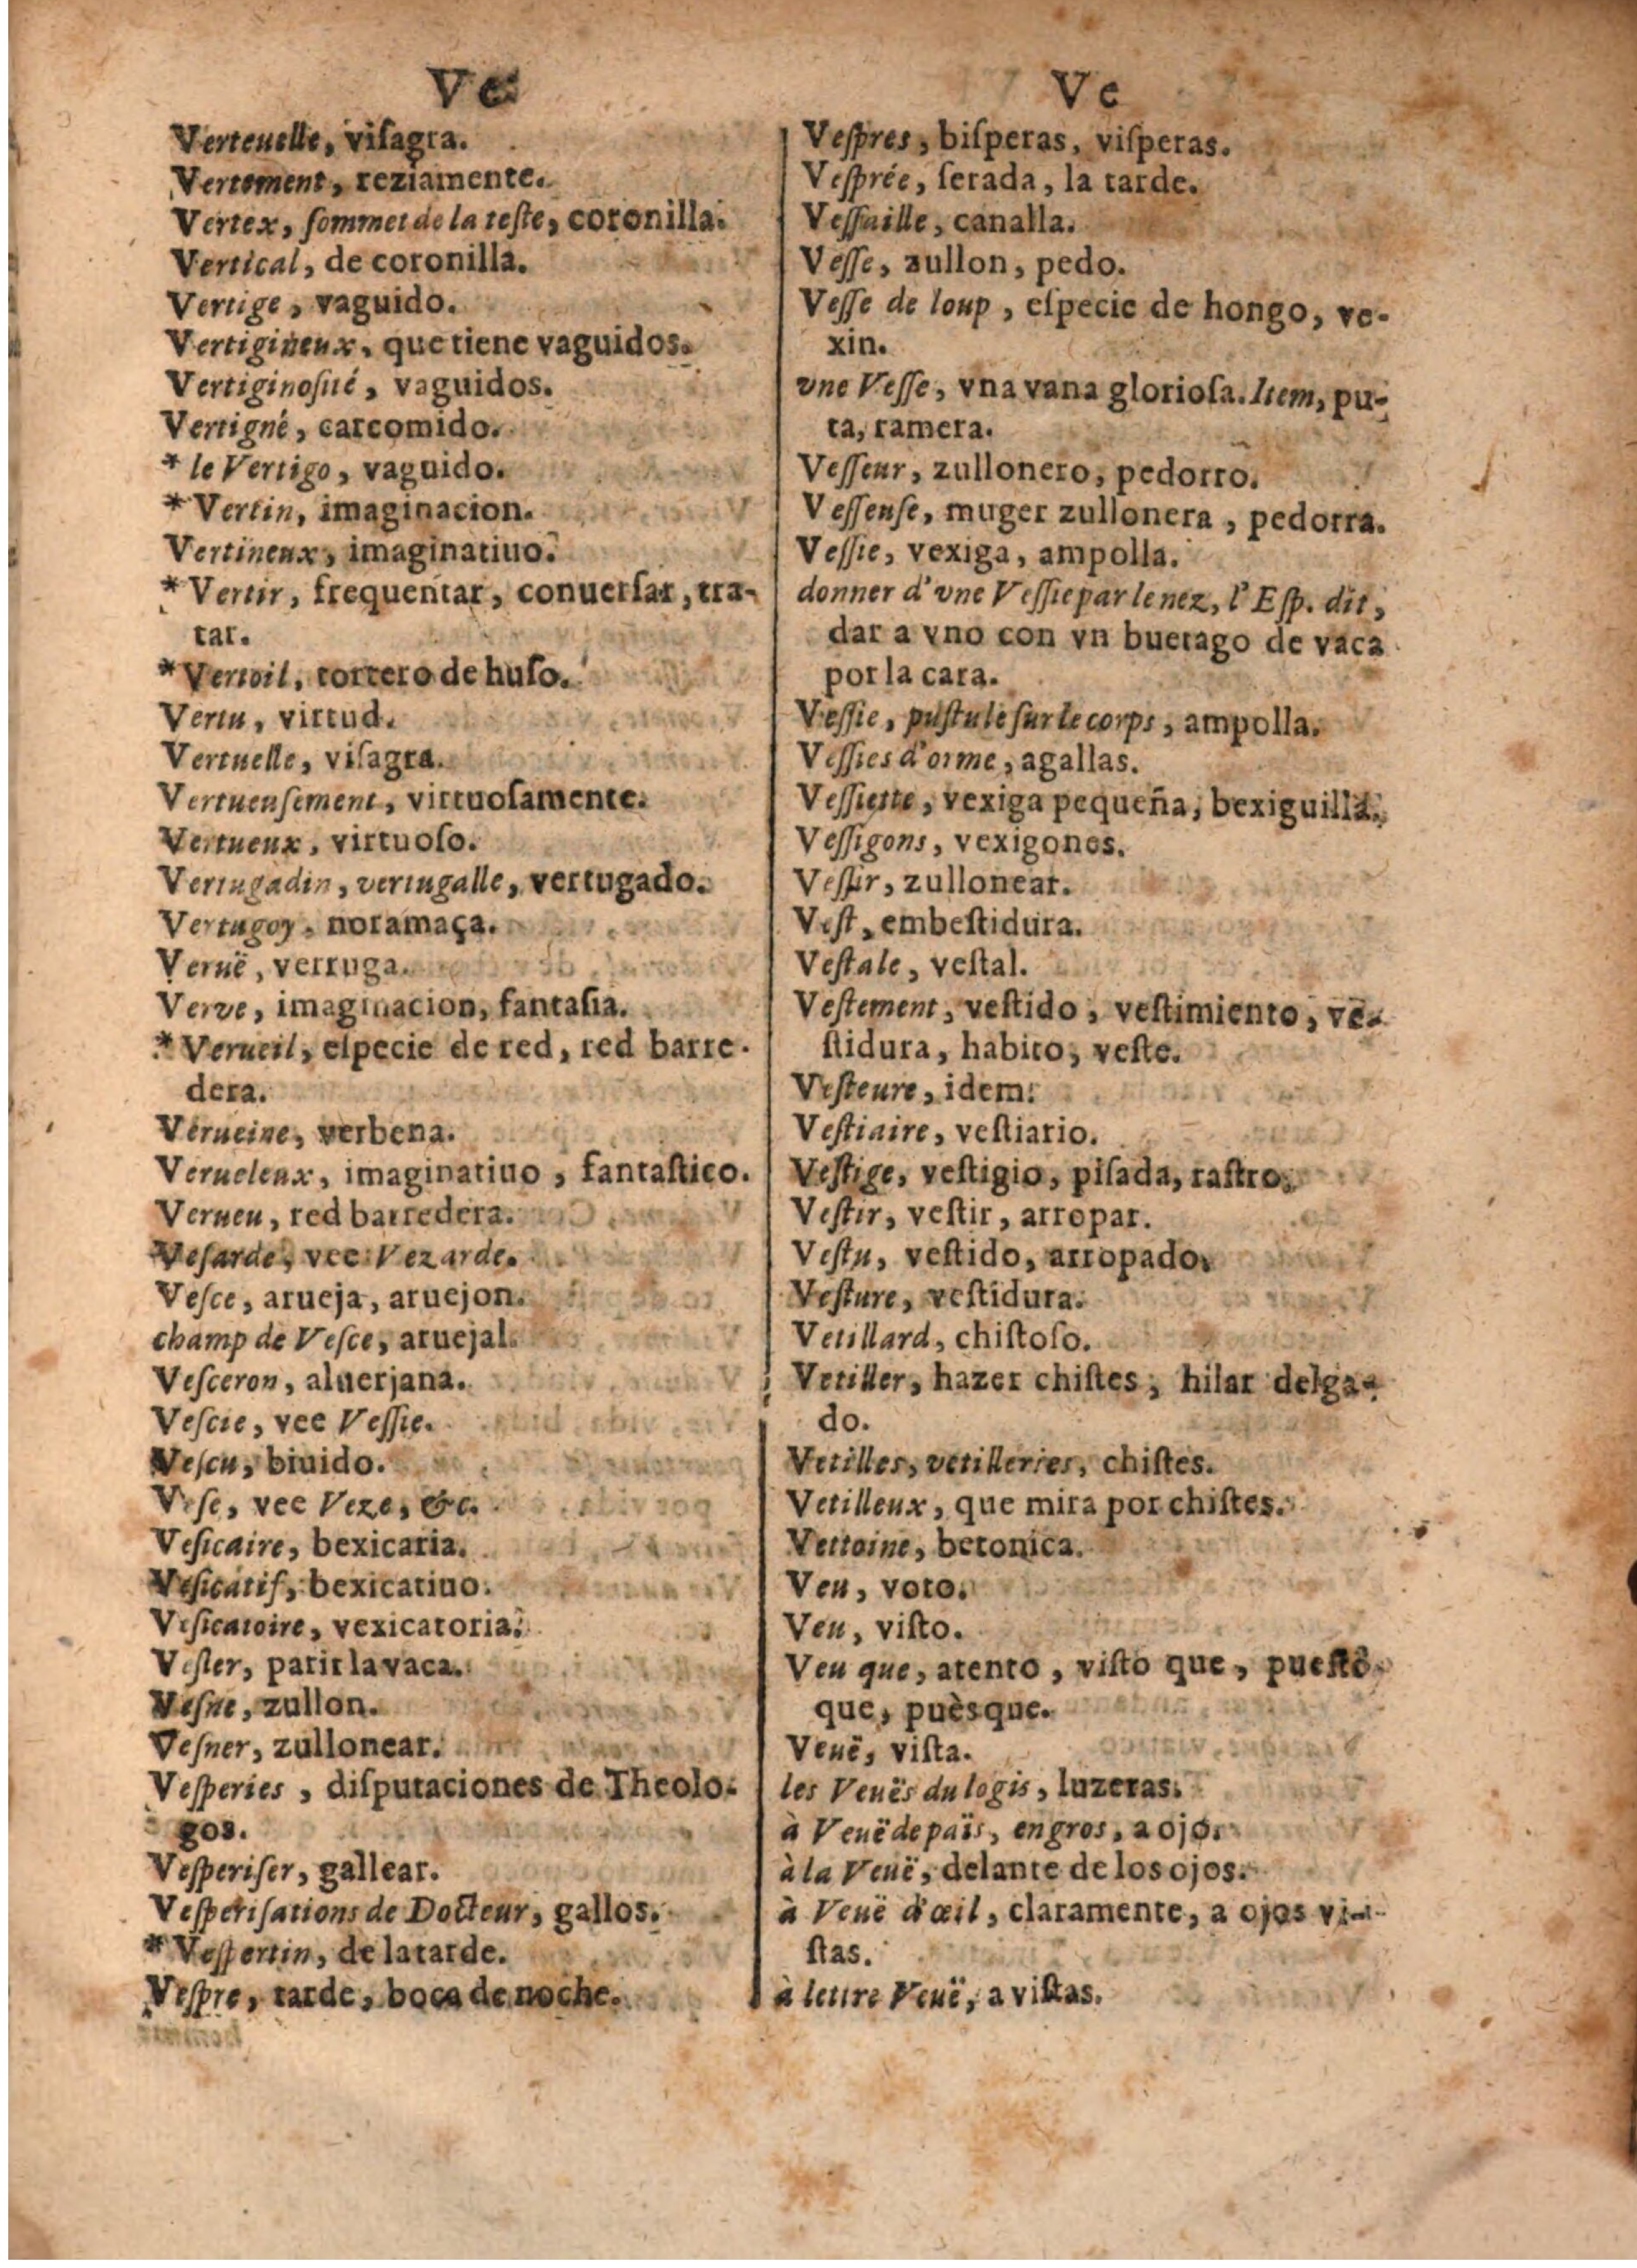 Ve
Verteuelle, viſagra.
Vertement, reziamente.
Vertex, ſommet de la teſte, coronilla.
Vertical, de coronilla.
Vertige, vaguido.
Vertigineux, que tiene vaguidos.
Vertiginoſité, vaguidos.
Vertigné, carcomido.
* le Vertigo, vaguido.
* Vertin, imaginacion.
Vertineux, imaginatiuo.
* Vertir, frequentar, conuerſar, tra-
tar.
* Vertoil, tortero de huſo.
Vertu, virtud.
Vertuelle, viſagra.
Vertueuſement, virtuoſamente.
Vertueux, virtuoſo.
Vertugadin, vertugalle, vertugado.
Vertugoy, noramaça.
Veruë, verruga.
Verve, imaginacion, fantaſia.
* Verueil, eſpecie de red, red barre-
dera.
Verueine, verbena.
Verueleux, imaginatiuo, fantaſtico.
Verueu, red barredera.
Veſarde, vee Vezarde.
Veſce, arueja, aruejon.
champ de Veſce, aruejal.
Veſceron, aluerjana.
Veſcie, vee Veſſie.
Veſcu, biuido.
Veſe, vee Veze, &c.
Veſicaire, bexicaria.
Veſicatif, bexicatiuo.
Veſicatoire, vexicatoria.
Veſler, parir la vaca.
Veſne, zullon.
Veſner, zullonear.
Veſperies, diſputaciones de Theolo-
gos.
Veſperiſer, gallear.
Veſperiſations de Docteur, gallos.
* Veſpertin, de la tarde.
Veſpre, tarde, boca de noche.
Ve
Veſpres, biſperas, viſperas.
Veſprée, ſerada, la tarde.
Veſſaille, canalla.
Veſſe, zullon, pedo.
Veſſe de loup, eſpecie de hongo, ve-
xin.
vne Veſſe, vna vana glorioſa. Item, pu-
ta, ramera.
Veſſeur, zullonero, pedorro.
Veſſeuſe, muger zullonera, pedorra.
Veſſie, vexiga, ampolla.
donner d'vne Veſſie par le nez, l'Eſp. dit,
dar a vno con vn buetago de vaca
por la cara.
Veſſie, puſtule ſur le corps, ampolla.
Veſſies d'orme, agallas.
Veſſiette, vexiga pequeña, bexiguilla.
Veſſigons, vexigones.
Veſſir, zullonear.
Veſt, embeſtidura.
Veſtale, veſtal.
Veſtement, veſtido, veſtimiento, ve-
ſtidura, habito, veſte.
Veſteure, idem.
Veſtiaire, veſtiario.
Veſtige, veſtigio, piſada, raſtro.
Veſtir, veſtir, arropar.
Veſtu, veſtido, arropado.
Veſture, veſtidura.
Vetillard, chiſtoſo.
Vetiller, hazer chiſtes, hilar delga-
do.
Vetilles, vetilleries, chiſtes.
Vetilleux, que mira por chiſtes.
Vettoine, betonica.
Veu, voto.
Veu, viſto.
Veu que, atento, viſto que, pueſto
que, puèsque.
Veuë, viſta.
les Veuës du logis, luzeras.
à Veuë de païs, en gros, a ojo.
à la Veuë, delante de los ojos.
à Veuë d'œil, claramente, a ojos vi-
ſtas.
à lettre Veuë, a viſtas.